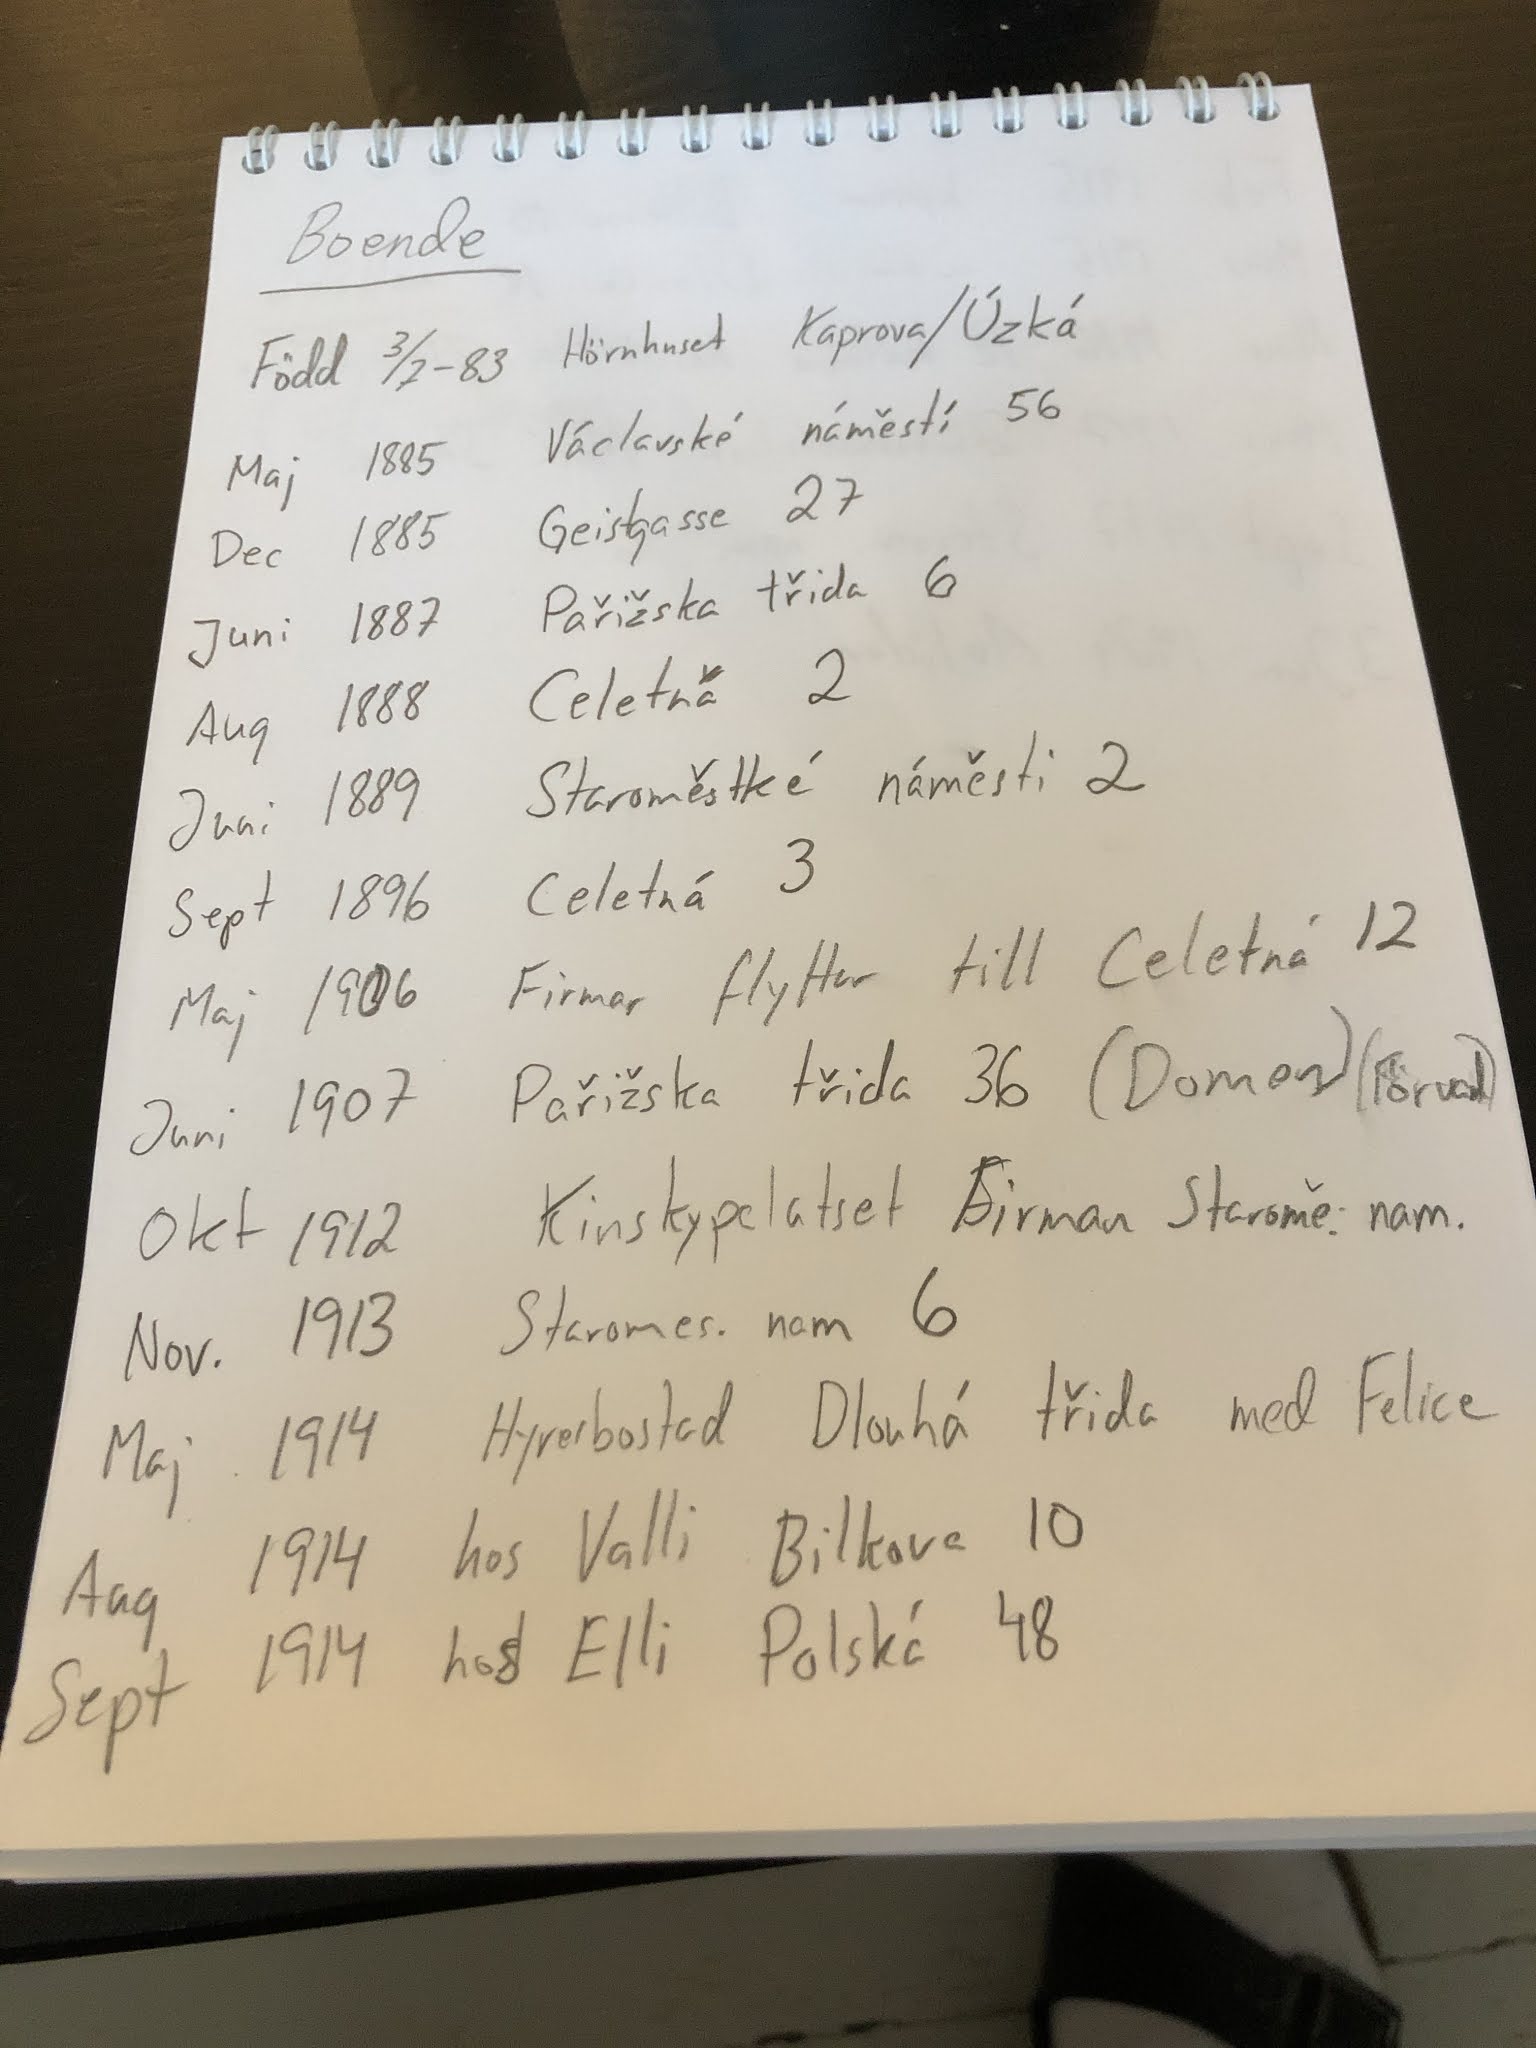 Boende
Född 3/7-83 Hörnhuset Kaprova/Úzká
Maj 1885 Václavské náměstí 56
Dec 1885 Geistgasse 27
Juni 1887 Pařižska třida 6
Aug 1888 Celetná 2
Juni 1889 Staroměstké náměsti 2
Sept 1896 Celetná 3
Maj 1906 Firman flyttar till Celetná 12
Juni 1907 Pařižska třida 36 (Domen)
Okt 1912 Kinskypalatset Firman Staromě. nam.
Nov. 1913 Staromes. nam 6
Maj 1914 Hyresbostad Dlouhá třida med Felice
Aug 1914 hos Valli Bilkova 10
Sept 1914 hos Elli Polská 48